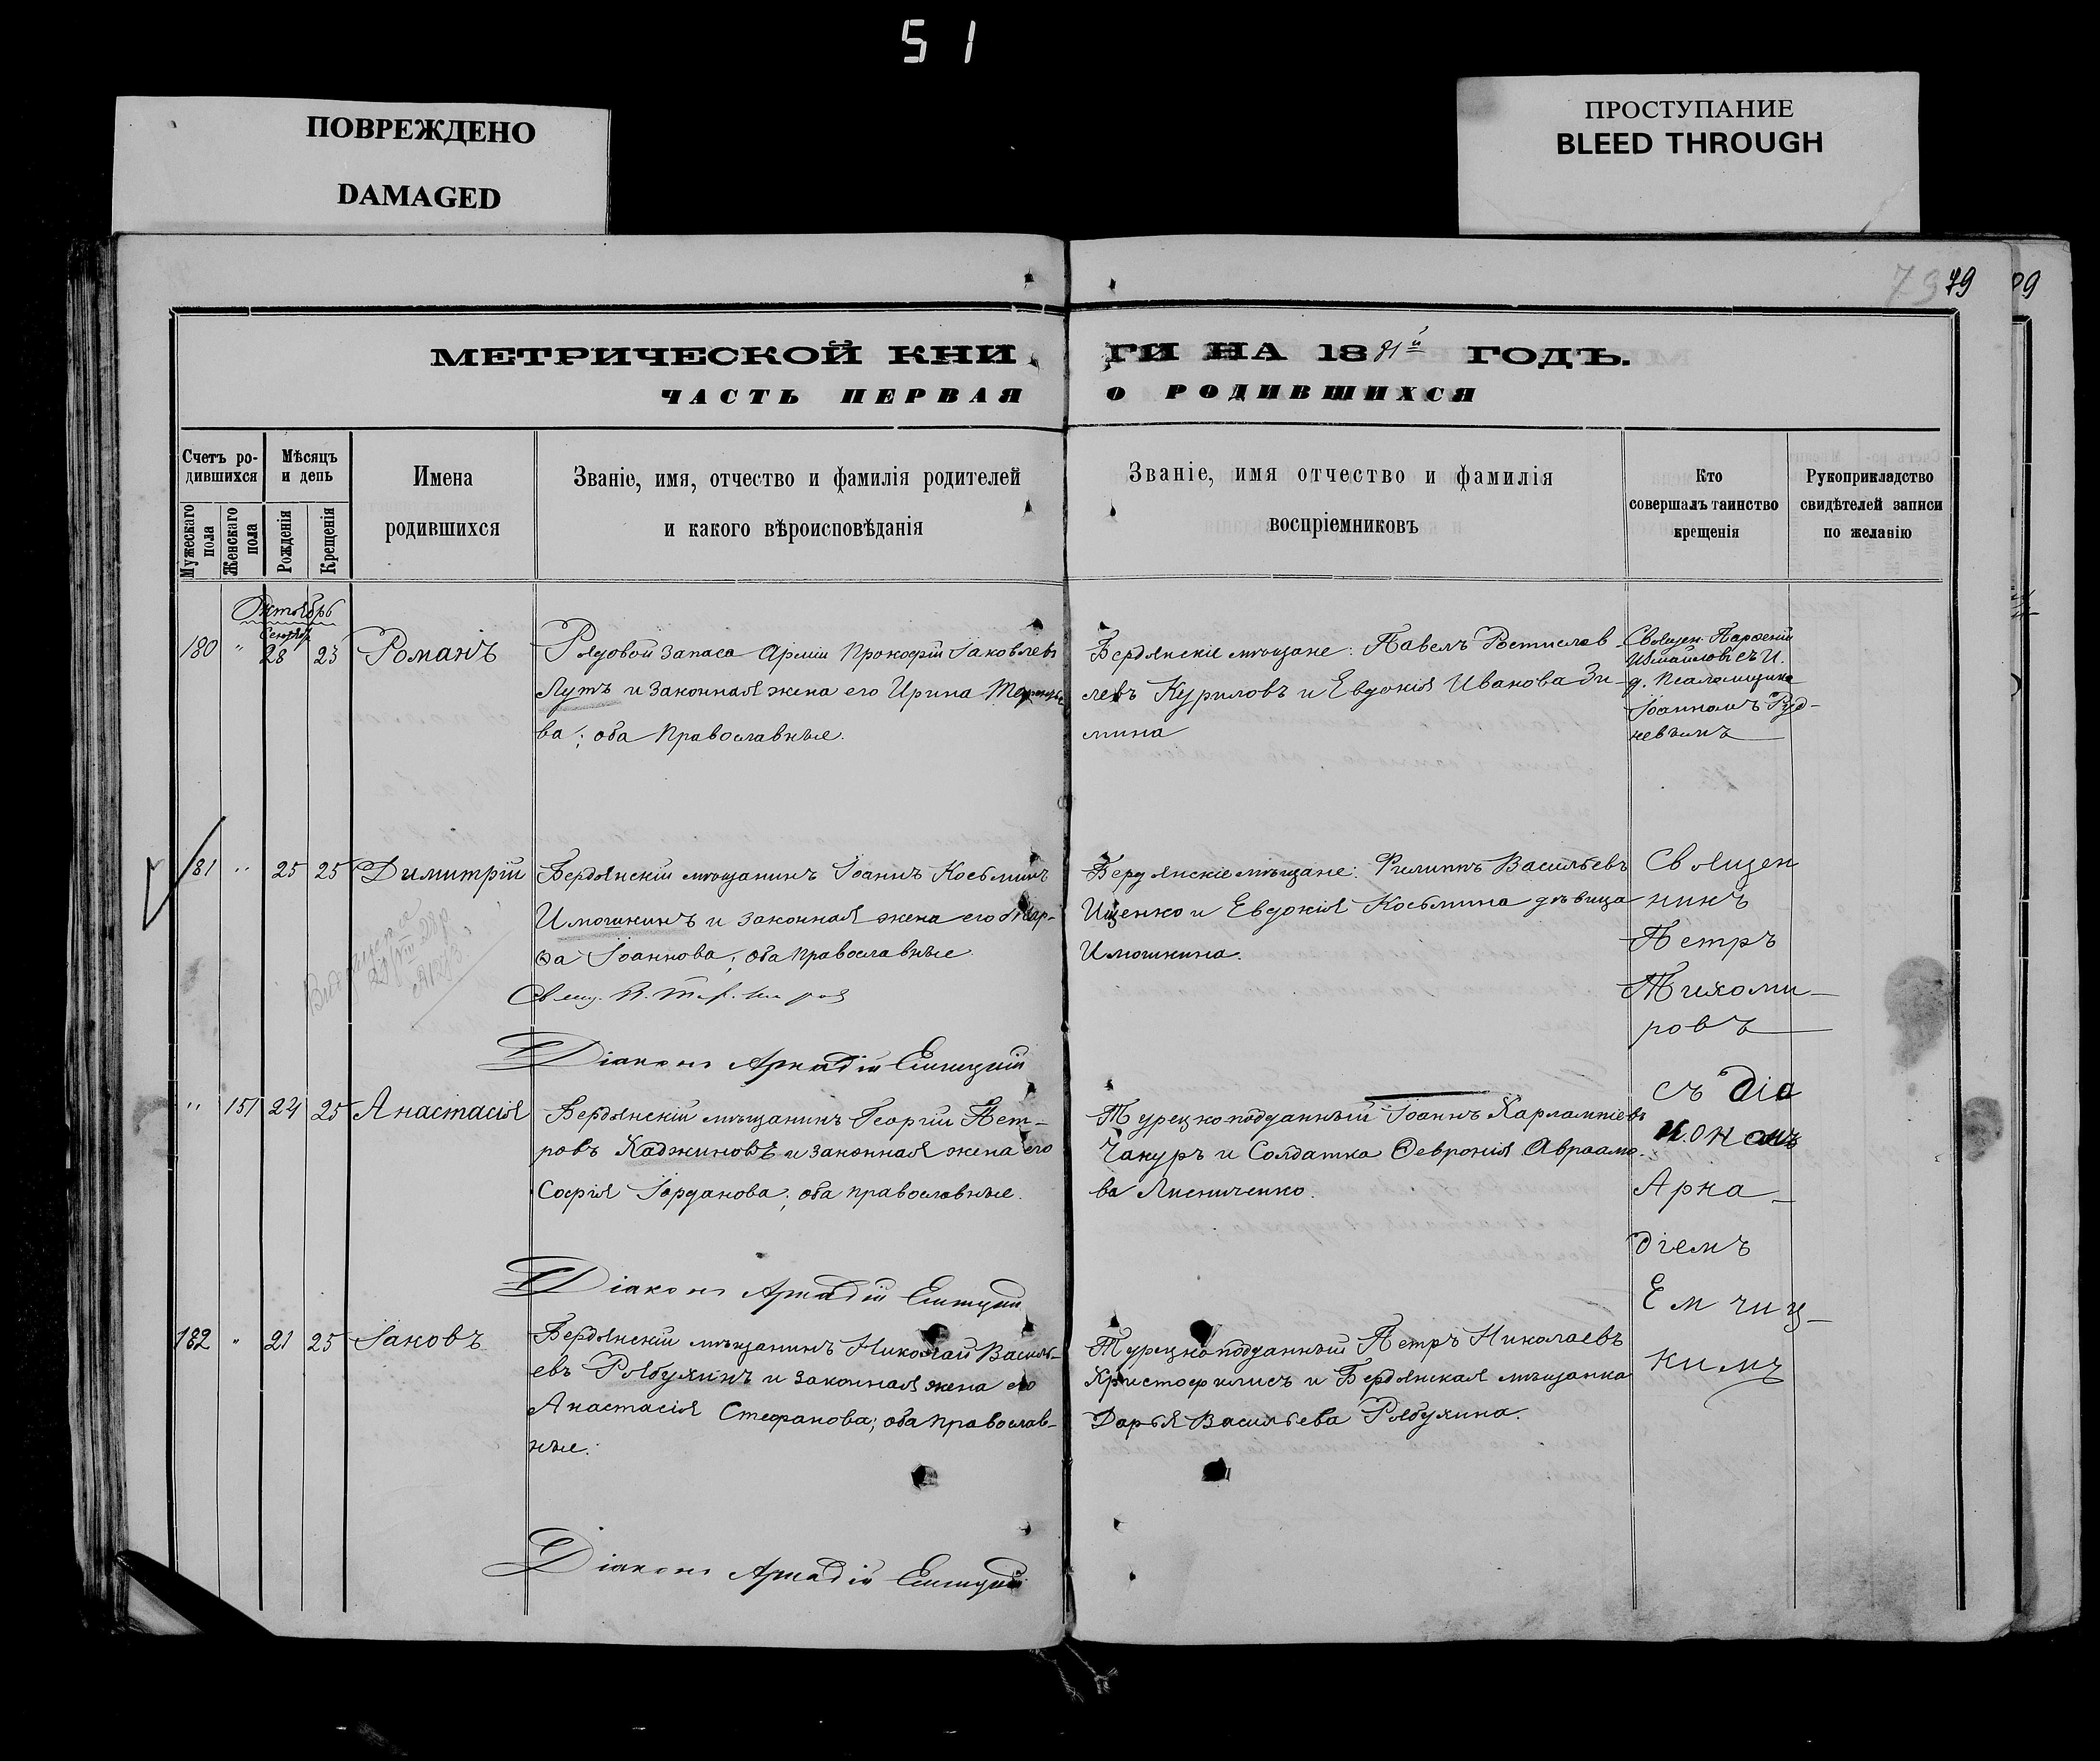 51
ПОВРЕЖДЕНО
DAMAGED
ПРОСТУПАНИЕ
BLEED THROUGH
79 79
МЕТРИЧЕСКОЙ КНИГИ НА 1881й ГОДЪ.
ЧАСТЬ ПЕРВАЯ О РОДИВШИХСЯ
Счетъ родившихся
Мужескаго пола
Женскаго пола
Мѣсяцъ и день
Рожденія
Крещенія
Имена
родившихся
Званіе, имя, отчество и фамилія родителей
и какого вѣроисповѣданія
Званіе, имя отчество и фамилія
воспріемниковъ
Кто
совершалъ таинство
крещенія
Рукоприкладство
свидѣтелей записи
по желанію
Октябрь
180 " 28 23 Романъ
Рядовой запаса Арміи Прокофій Іаковлевъ
Лутъ и законная жена его Ирина
ва; оба Православные.
Бердянскіе мѣщане: Павелъ
левъ Куриловъ и Евдокія Иванова Зи-
мина
Священ. Парѳеній
Измаиловъ съ И.
д. Псаломщика
Іоанномъ Руд-
невымъ
181 " 25 25 Димитрій
Бердянскій мѣщанинъ Іоаннъ Косьминъ
Имошкинъ и законная жена его Мар-
ѳа Іоаннова; оба православные.
Діаконъ Аркадій Емчицкій
Бердянскіе мѣщане: Филиппъ Васильевъ
Ищенко и Евдокія Косьмина дѣвица
Имошкина.
Священ
никъ
Петръ
Тихоми-
ровъ
съ Діа
кономъ
Арка-
діемъ
Емчиц-
кимъ
" 151 24 25 Анастасія
Бердянскій мѣщанинъ Георгій Пет-
ровъ Хаджиновъ и законная жена его
Софія Іорданова; оба православные.
Діаконъ Аркадій Емчицкій
Турецкоподданный Іоаннъ Харлампіевъ
Чакуръ и Солдатка Ѳевронія Авраамо-
ва Лисниченко.
182 " 21 25 Іаковъ
Бердянскій мѣщанинъ Николай Василь-
евъ Рябухинъ и законная жена его
Анастасія Стефанова; оба православ-
ные.
Діаконъ Аркадій Емчицкій
Турецкоподданный Петръ Николаевъ
Христофилисъ и Бердянская мѣщанка
Дарья Васильева Рябухина.